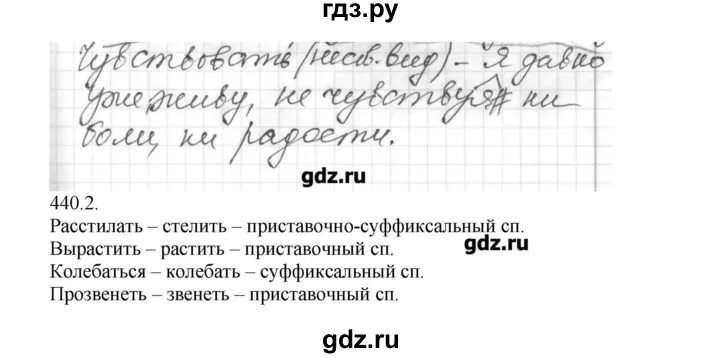 гдз.ру
Чувствовать (несв. вид) – я давно
уже живу, не чувствуя ни
боли, ни радости.
gdz.ru
440.2.
Расстилать – стелить – приставочно-суффиксальный сп.
gdz.ru
Вырастить – растить – приставочный сп.
Колебаться – колебать – суффиксальный сп.
Прозвенеть – звенеть – приставочный сп.
gdz.ru